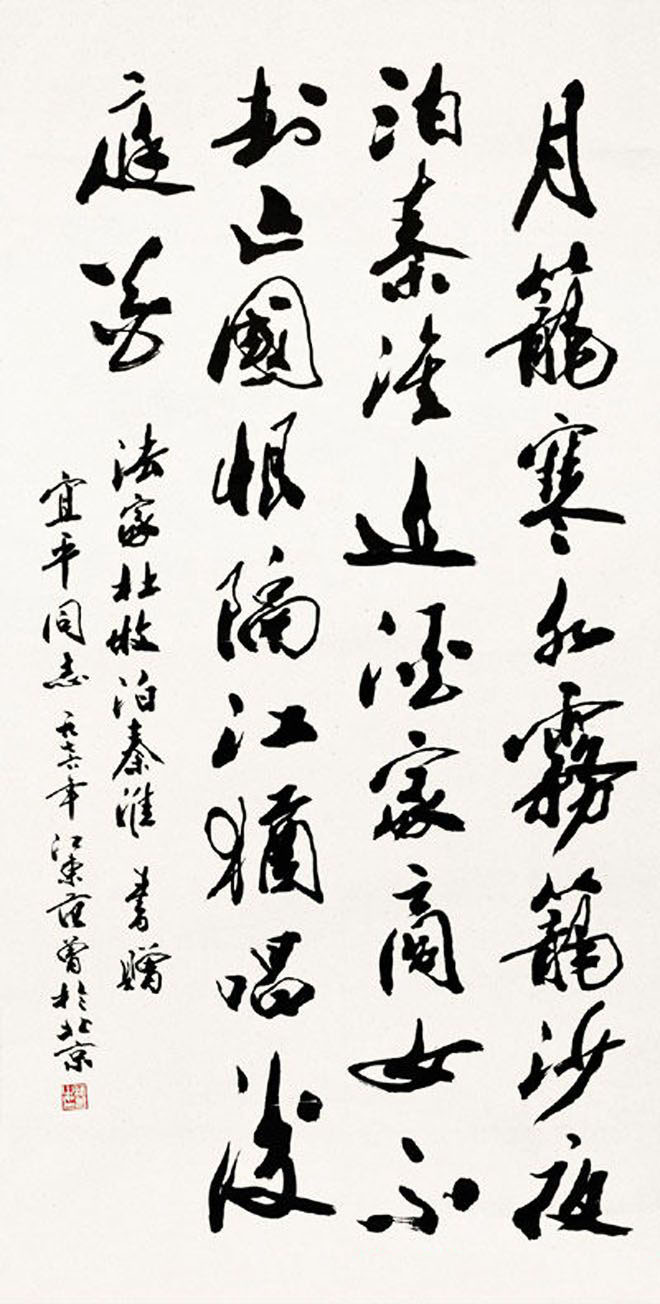 月籠寒水霧籠沙夜
泊秦淮近酒家商女不
亡國恨隔江猶唱後
庭花
法家杜牧泊秦淮 書贈
宜平同志 一九七六年 江東范曾於北京